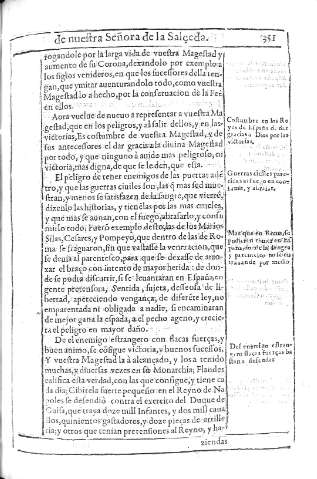 de nuestra Señora de la Salceda. 351
rogandole por la larga vida de vuestra Magestad y
aumento de su Corona, dexando por exemplo a
los siglos venideros, en que los sucessores della ten-
gan, que ymitar aventurandolo todo, como vuestra
Magestad lo a hecho, por la conseruacion de la Fee
en ellos.
Aora vuelue de nueuo a representar a vuestra Ma
gestad, que en los peligros, y al salir dellos, y en las
victorias, Es costumbre de vuestra Magestad, y de
sus antecessores el dar gracias a la diuina Magestad
por todo, y que ninguno à auido mas peligroso, ni
victoria, mas digna, de que se le den, que esta.
El peligro de tener enemigos de las puertas adē
tro, y que las guerras ciuiles son, las q̃ mas fed mue-
stran, y menos se satisfazen de la sangre, que vierē,
dizenlo las historias, y tienēlas por las mas crueles,
y que mas se aunan, con el fuego, abrasarlo, y consu
mirlo todo: Fuerō exemplo desto, las de los Marios
Silas, Cesares, y Pompeyo, que dentro de las de Ro-
ma se fraguaron, sin que vastasse la veneracion, que
se deuia al parentesco, para que se dexasse de arro-
xar el braço con intento de mayor herida: de don-
de se podra discurrir, si se leuantaran en España, en
gente pretensora, sentida, sujeta, desseosa de li-
bertad, apeteciendo vengança, de diferēte ley, no
emparentada ni obligada a nadie, si encaminaran
de mejor gana la espada, a el pecho ageno, y crecie
ra el peligro en mayor daño.
De el enemigo estrangero con flacas fuerças, y
buen animo, se cōsigue victoria, y buenos sucessos.
Y vuestra Magestad la à alcançado, y los a tenido
muchas, y diuersas vezes en su Monarchia; Flandes
califica esta verdad, con las que consigue, y tiene ca
da dia; Cibitela fuerte pequeño en el Reyno de Na
poles se defendiò contra el exercito del Duque de
Guisa, que traya doze mil Infantes, y dos mil caua
los, quinientos gastadores, y doze pieças de artille
ria; y otros que tenian pretensiones al Reyno, y ha-
ziendas
Costumbre en los Re
yes de España el dar
gracias a Dios por las
victorias.
Guerras ciuiles
y
Mas que en Roma, se
pudieran
y parentesco no
Del enemigo estran-
gero flacas fuerças ba
stan a defender